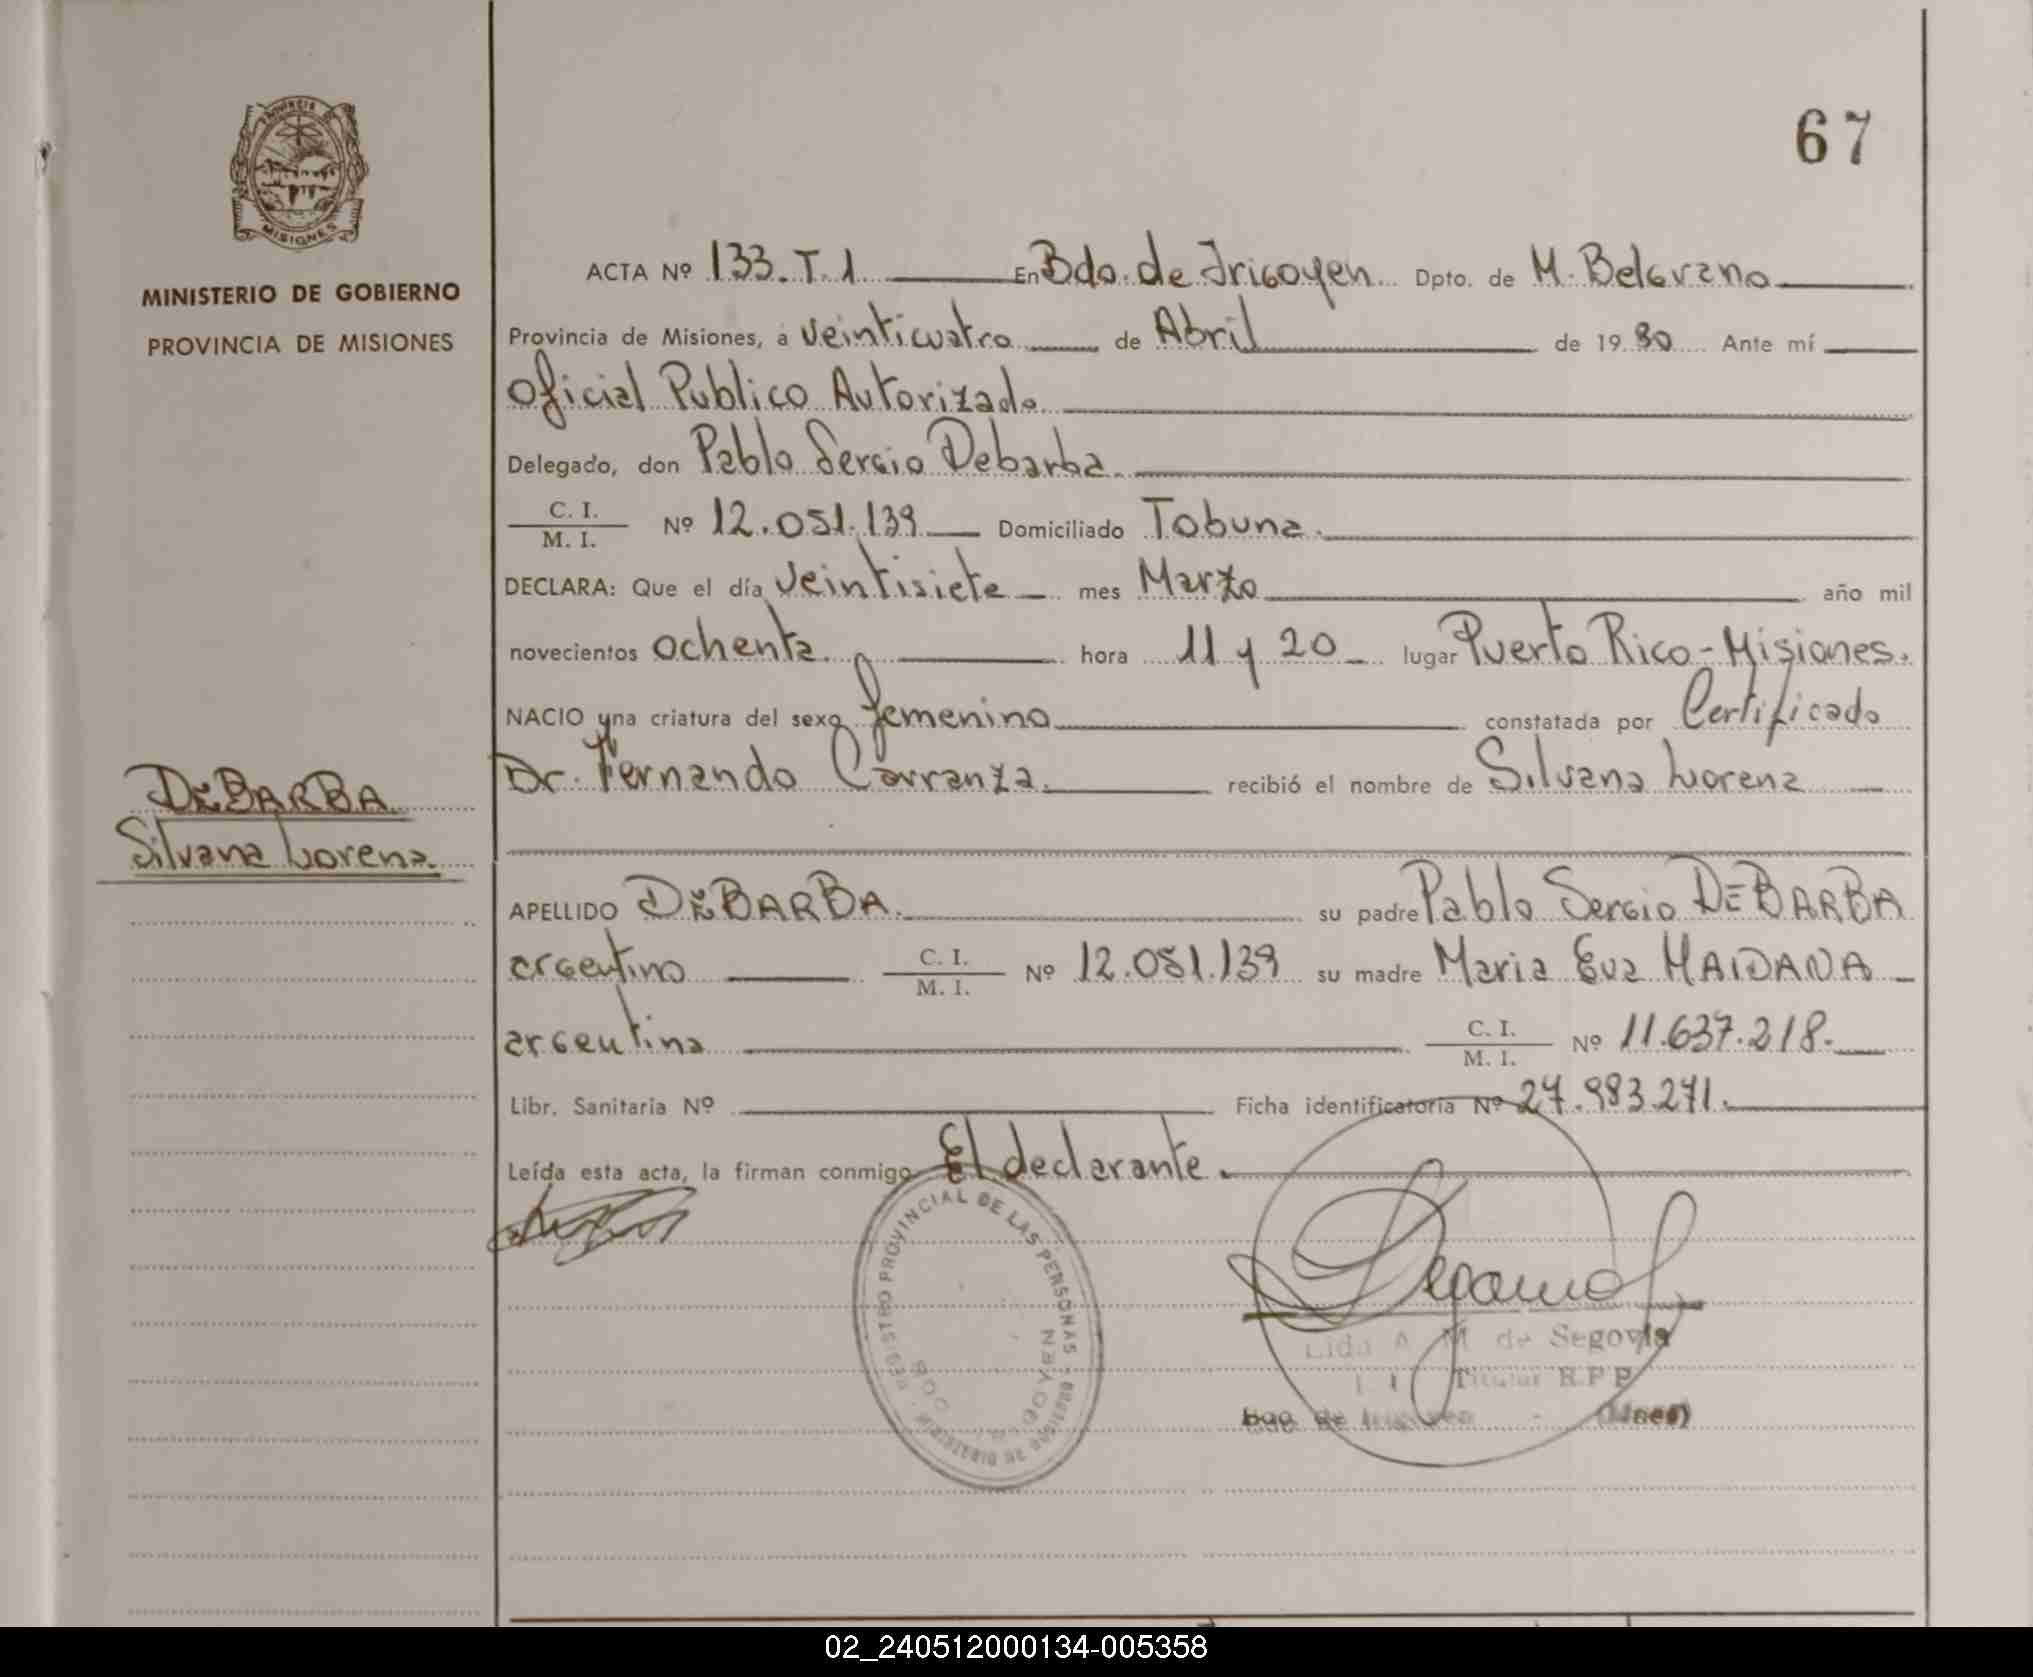 67
PROVINCIA DE
MISIONES
MINISTERIO DE GOBIERNO
PROVINCIA DE MISIONES
ACTA Nº 133. T. 1 En Bdo. de Irigoyen Dpto. de M. Belgrano
Provincia de Misiones, a veinticuatro de Abril de 19 80 Ante mí
Oficial Publico Autorizado
Delegado, don Pablo Sergio Debarba
C. I.
M. I. Nº 12.051.139 Domiciliado Tobuna.
DECLARA: Que el día veintisiete mes Marzo año mil
novecientos ochenta hora 11 y 20 lugar Puerto Rico - Misiones.
NACIO una criatura del sexo femenino constatada por Certificado
Dr. Fernando Carranza. recibió el nombre de Silvana Lorena
DEBARBA
Silvana Lorena
APELLIDO DEBARBA. su padre Pablo Sergio DEBARBA
argentino C. I.
M. I. Nº 12.051.139 su madre Maria Eva MAIDANA
argentina C. I.
M. I. Nº 11.637.218.
Libr. Sanitaria Nº Ficha identificatoria Nº 27.983.271.
Leída esta acta, la firman conmigo El declarante.
REGISTRO PROVINCIAL DE LAS PERSONAS
Lida A M de Segovia
Titular R.P.P.
Bdo. de Irigoyen - (Mnes)
02_240512000134-005358